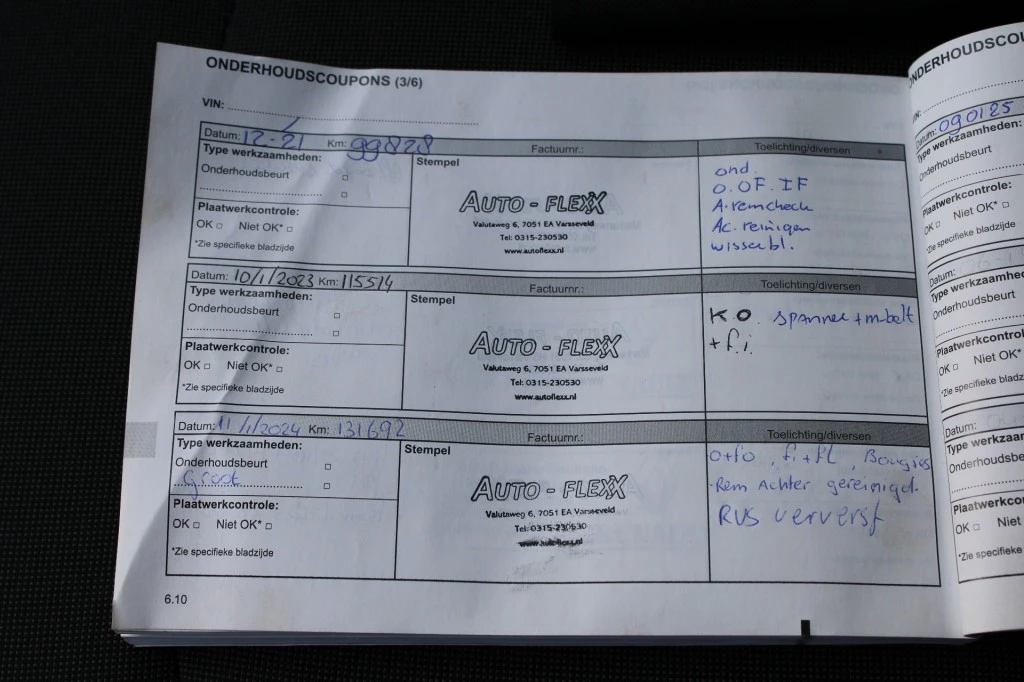 ONDERHOUDSCOUPONS (3/6)
VIN:
Datum: 12-21 Km: 99828 Factuurnr.: Toelichting/diversen
Type werkzaamheden:
Onderhoudsbeurt
Plaatwerkcontrole:
OK Niet OK*
*Zie specifieke bladzijde
Stempel
AUTO - FLEXX
Valutaweg 6, 7051 EA Varsseveld
Tel: 0315-230530
www.autoflexx.nl
ond.
O.OF.IF
A.remcheck
Ac.reinigen
wisserbl.
Datum: 10/1/2023 Km: 115514 Factuurnr.: Toelichting/diversen
Type werkzaamheden:
Onderhoudsbeurt
Plaatwerkcontrole:
OK Niet OK*
*Zie specifieke bladzijde
Stempel
AUTO - FLEXX
Valutaweg 6, 7051 EA Varsseveld
Tel: 0315-230530
www.autoflexx.nl
K.O. spanner + m-belt
+ f.i.
Datum: 11/1/2024 Km: 131692 Factuurnr.: Toelichting/diversen
Type werkzaamheden:
Onderhoudsbeurt
Groot
Plaatwerkcontrole:
OK Niet OK*
*Zie specifieke bladzijde
Stempel
AUTO - FLEXX
Valutaweg 6, 7051 EA Varsseveld
Tel: 0315-230530
www.autoflexx.nl
O+fo, fi+fl, Bougies
Rem Achter gereinigd.
RVS ververst
6.10
ONDERHOUDSCOU
Datum: 090125
Type werkzaamhed
Onderhoudsbeurt
Plaatwerkcontrole:
OK Niet OK*
*Zie specifieke bladzij
Datum:
Type werkzaamhe
Onderhoudsbeurt
Plaatwerkcontrole
OK Niet OK*
*Zie specifieke bladz
Datum:
Type werkzaam
Onderhoudsbe
Plaatwerkcont
OK Niet
*Zie specifieke bl